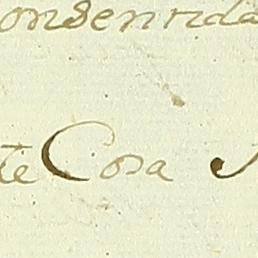 onsentida
te Cosa